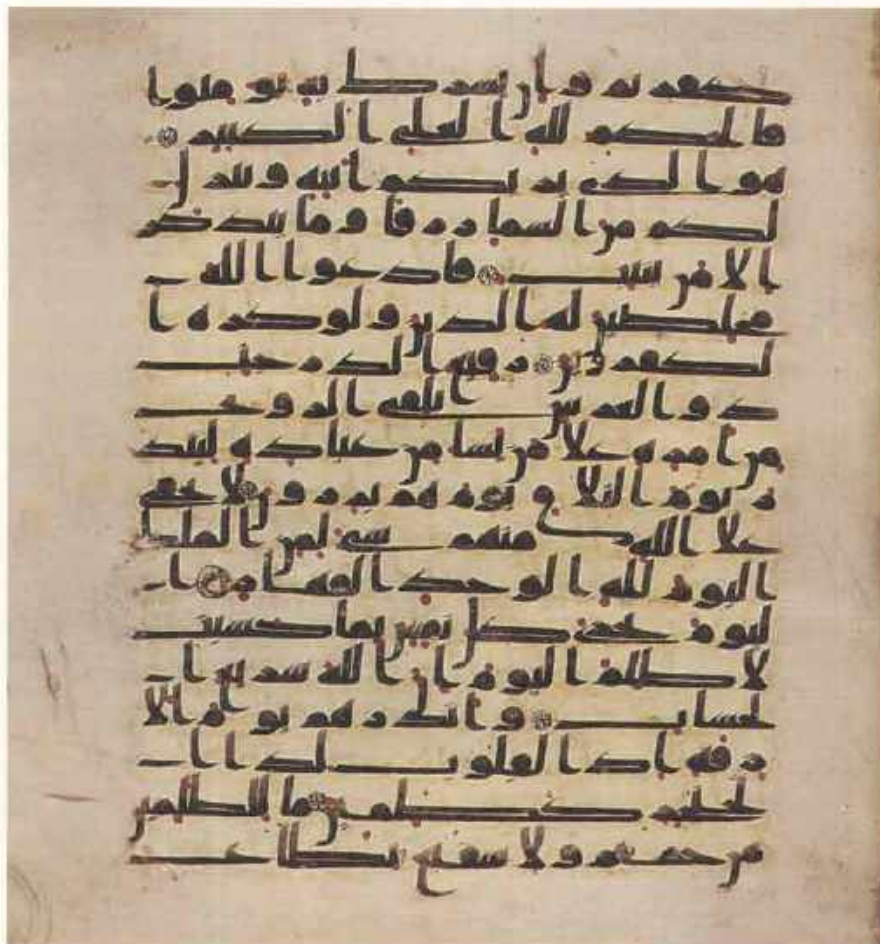 كفرتم وان يشرك به تومنوا
فالحكم لله العلي الكبير
هو الذي يريكم ايته وينزل
لكم من السما رزقا وما يتذكر
الا من ينيب فادعوا الله
مخلصين له الدين ولو كره ا
لكفرون رفيع الدرجت
ذو العرش يلقي الروح
من امره علا من يشا من عباده لينذ
ر يوم التلاق يوم هم برزون لا يخفى
علا الله منهم شي لمن الملك
اليوم لله الوحد القهار ا
ليوم تجزى كل نفس بما كسبت
لا ظلم اليوم ان الله سريع ا
لحساب وانذرهم يوم الا
زفة اذ القلوب لدى ا
لحنجر كظمين ما للظلمين
من حميم ولا شفيع يطاع